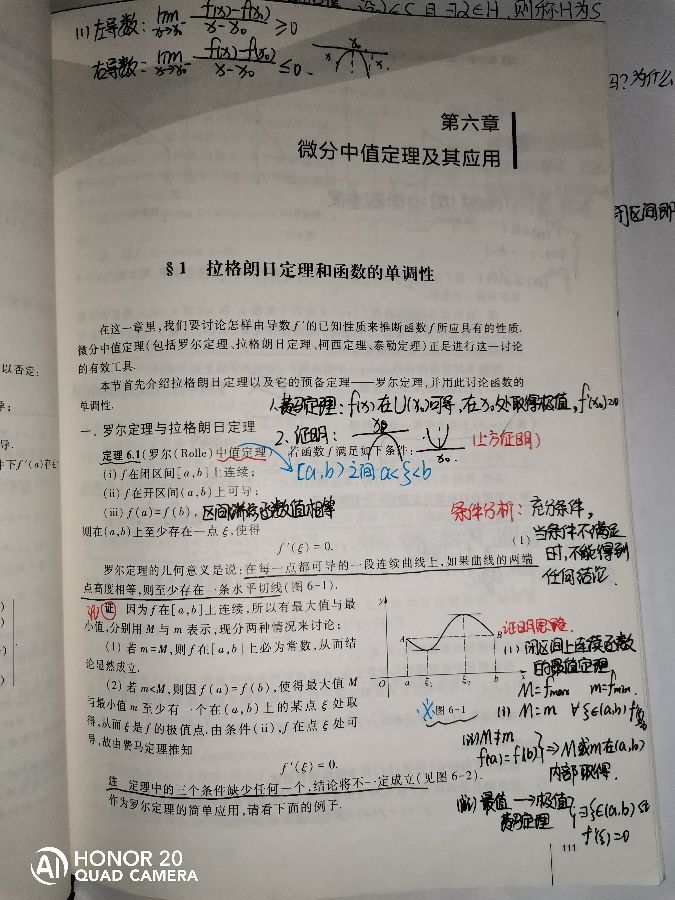 (1) 左导数: lim x→x₀⁻ f(x)-f(x₀) / x-x₀ ≥0
右导数: lim x→x₀⁻ f(x)-f(x₀) / x-x₀ ≤0.
则称H为S
为什么
闭区间即
第六章
微分中值定理及其应用
§1 拉格朗日定理和函数的单调性
在这一章里,我们要讨论怎样由导数f′的已知性质来推断函数f所应具有的性质.
微分中值定理(包括罗尔定理、拉格朗日定理、柯西定理、泰勒定理)正是进行这一讨论
的有效工具.
以否定:
本节首先介绍拉格朗日定理以及它的预备定理——罗尔定理,并用此讨论函数的
单调性.
1.费马定理: f(x)在U(x₀)可导,在x₀处取得极值,f′(x₀)=0
一、罗尔定理与拉格朗日定理
2.证明:
(上方证明)
x₀
定理6.1(罗尔(Rolle)中值定理) 若函数f满足如下条件:
(i) f在闭区间[a,b]上连续;
[a,b) 之间 a<ξ<b
(ii) f在开区间(a,b)上可导;
(iii) f(a)=f(b), 区间端点函数值相等
则在(a,b)上至少存在一点ξ,使得
f′(ξ)=0. (1)
条件分析: 充分条件,
当条件不满足
时,不能得到
任何结论.
罗尔定理的几何意义是说:在每一点都可导的一段连续曲线上,如果曲线的两端
点高度相等,则至少存在一条水平切线(图6-1).
证 因为f在[a,b]上连续,所以有最大值与最
小值,分别用M与m表示,现分两种情况来讨论:
(1) 若m=M,则f在[a,b]上必为常数,从而结
论显然成立.
(2) 若m<M,则因f(a)=f(b),使得最大值M
与最小值m至少有一个在(a,b)上的某点ξ处取
得,从而ξ是f的极值点.由条件(ii),f在点ξ处可
导,故由费马定理推知
f′(ξ)=0.
y
A
B
O a ξ₁ ξ₂ b x
图6-1
证明思路.
(1) 闭区间上连续函数
的最值定理
M=fmax m=fmin.
(i) M=m ∀ξ∈(a,b)
(ii) M≠m
f(a)=f(b) ⇒M或m在(a,b)
内部取得.
(iii) 最值→极值
费马定理
∃ξ∈(a,b)
f′(ξ)=0
注 定理中的三个条件缺少任何一个,结论将不一定成立(见图6-2).
作为罗尔定理的简单应用,请看下面的例子.
111
HONOR 20
AI QUAD CAMERA